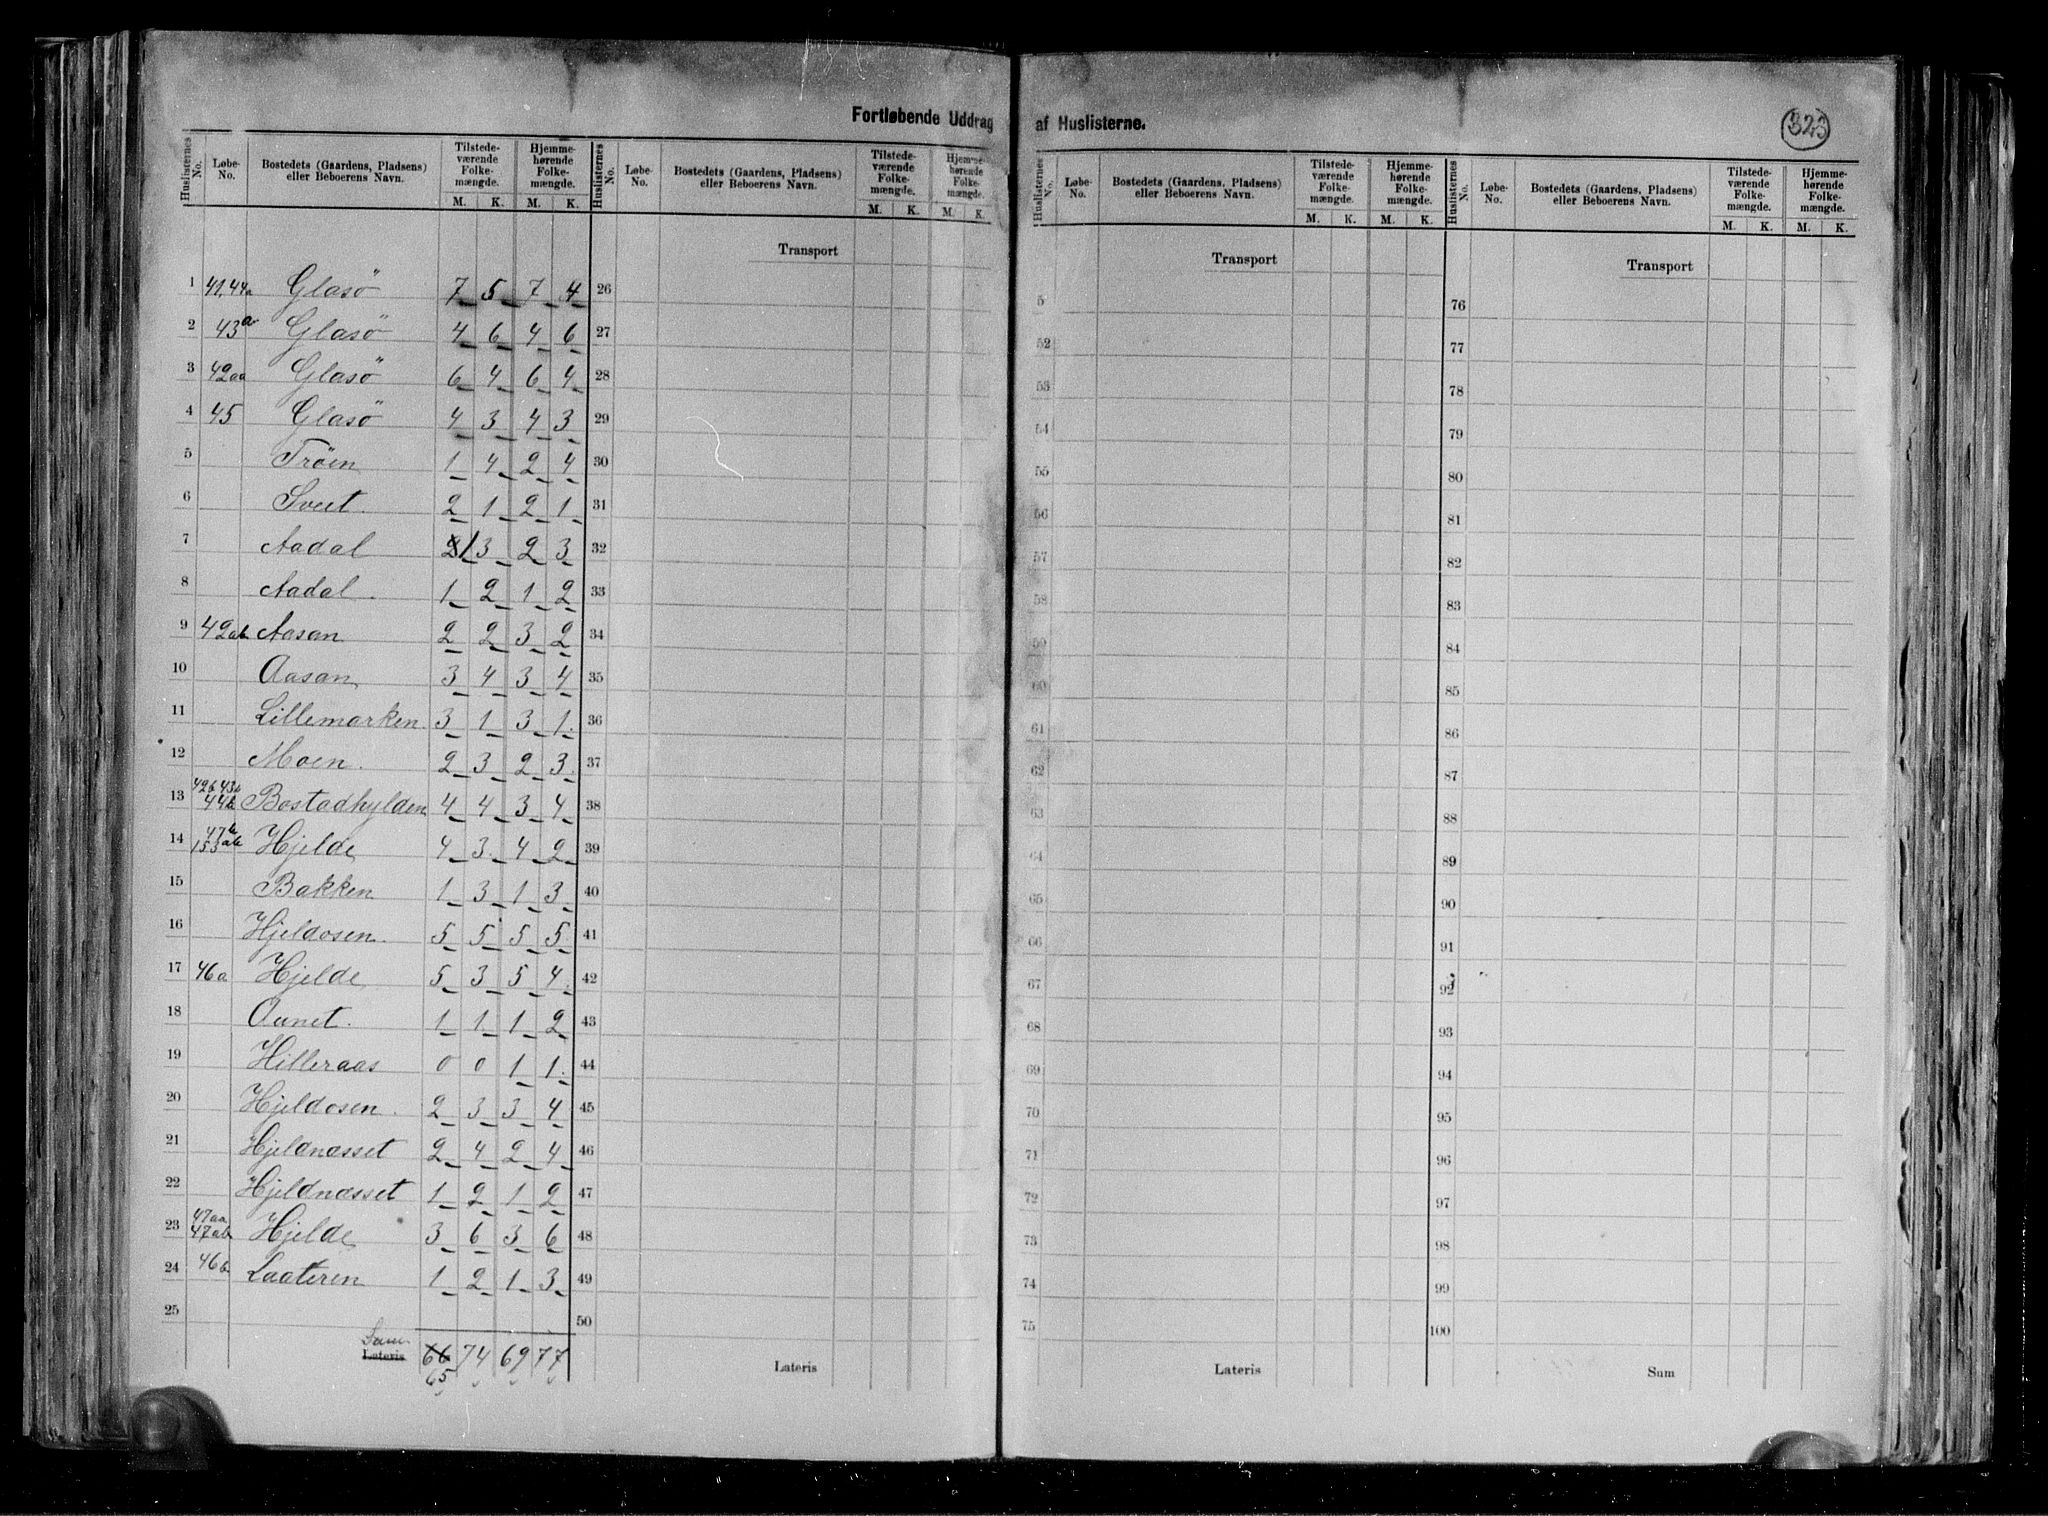 Fortløbende Uddrag af Huslisterne.
323
Huslisternes No. Løbe-No. Bostedets (Gaardens, Pladsens) eller Beboerens Navn. Tilstede-værende Folke-mængde. M. K. Hjemme-hørende Folke-mængde. M. K.
Huslisternes No. Løbe-No. Bostedets (Gaardens, Pladsens) eller Beboerens Navn. Tilstede-værende Folke-mængde. M. K. Hjemme-hørende Folke-mængde. M. K.
Huslisternes No. Løbe-No. Bostedets (Gaardens, Pladsens) eller Beboerens Navn. Tilstede-værende Folke-mængde. M. K. Hjemme-hørende Folke-mængde. M. K.
Huslisternes No. Løbe-No. Bostedets (Gaardens, Pladsens) eller Beboerens Navn. Tilstede-værende Folke-mængde. M. K. Hjemme-hørende Folke-mængde. M. K.
Transport Transport Transport
1 41,44a Glasö 7 5 7 4 26 5 76
2 43a Glasö 4 6 4 6 27 52 77
3 42aa Glasö 6 4 6 4 28 53 78
4 45 Glasö 4 3 4 3 29 54 79
5 Tröen 1 4 2 4 30 55 80
6 Sveet. 2 1 2 1 31 56 81
7 Aadal 2 1 3 2 3 32 57 82
8 Aadal. 1 2 1 2 33 58 83
9 42ab Aasan 2 2 3 2 34 59 84
10 Aasan 3 4 3 4 35 60 85
11 Lillemarken 3 1 3 1. 36 61 86
12 Moen. 2 3 2 3 37 62 87
42b 43b
13 44b Bostadhylden 4 4 3 4 38 63 88
47b
14 153ab Hjelde 4 3 4 2 39 64 89
15 Bakken 1 3 1 3 40 65 90
16 Hjeldosen. 5 5 5 5 41 66 91
17 46a Hjelde 5 3 5 4 42 67 92
18 Aunet. 1 1 1 2 43 68 93
19 Hilleraas 0 0 1 1. 44 69 94
20 Hjeldosen. 2 3 3 4 45 70 95
21 Hjeldnæsset 2 4 2 4 46 71 96
22 Hjeldnæsset 1 2 1 2 47 72 97
47aa
23 47ab Hjelde 3 6 3 6 48 73 98
24 46b Laateren 1 2 1 3 49 74 99
25 50 75 100
Sum
Lateris 66 74 69 77 Lateris Lateris Sum
65